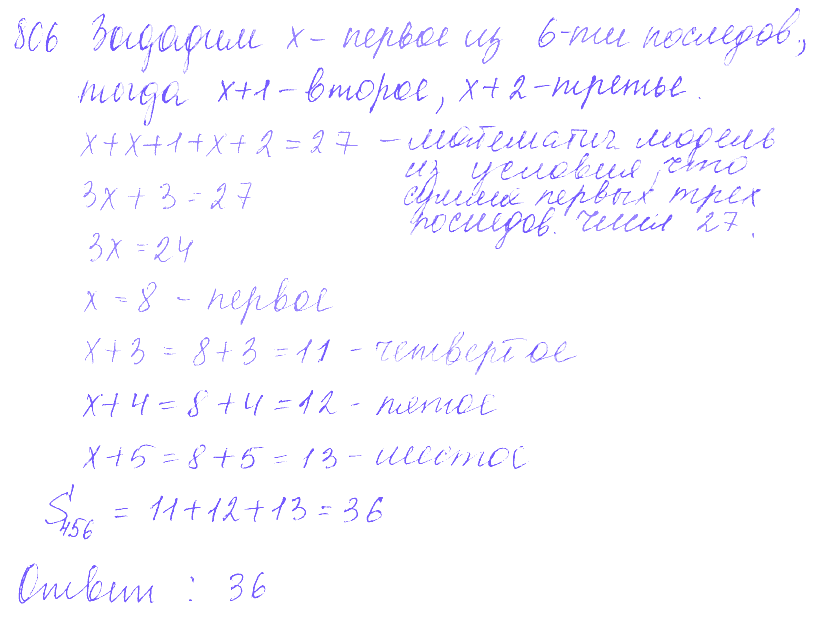 806 Зададим х - первое из 6-ти последов.,
тогда х+1 - второе, х+2 - третье.
х+х+1+х+2=27 - математич модель
из условия, что
3х+3=27 сумма первых трех
последов. чисел 27.
3х=24
х=8 - первое
х+3=8+3=11 - четвертое
х+4=8+4=12 - пятое
х+5=8+5=13 - шестое
S456 = 11+12+13=36
Ответ: 36